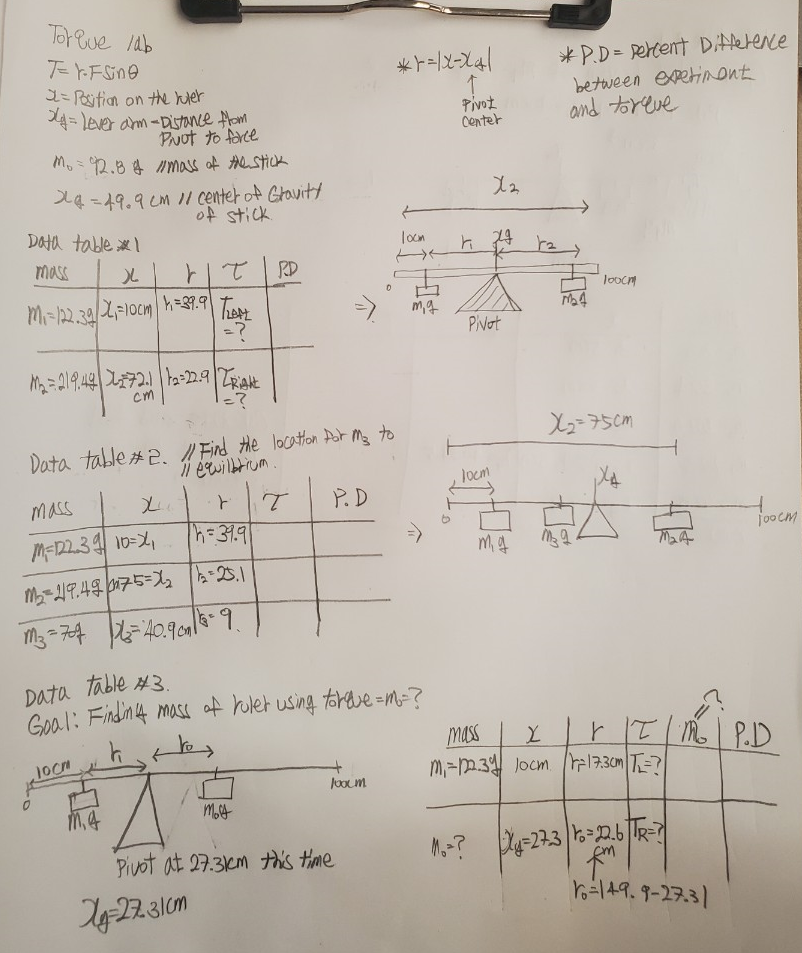 Torque lab
T= r.Fsinθ
x = Position on the ruler
xg = Lever arm - Distance from
Pivot to force
m₀ = 92.8 g //mass of the stick
xg = 49.9 cm // center of Gravity
of stick
*r=|x-xg|
↑
Pivot
Center
* P.D = Percent Difference
between experiment
and torque
Data table #1
mass x r τ P.D
m₁=122.3g x₁=10cm r₁=39.9 TLEFT
=?
m₂=219.4g x₂=72.1
cm r₂=22.9 τRight
=?
⇒
x₂
10cm r₁ xg r₂
0 100cm
m₁g m₂g
Pivot
Data table #2. // Find the location for m₃ to
// equilibrium.
mass x r τ P.D
m₁=122.3g 10=x₁ r₁=39.9
m₂=219.4g cm75=x₂ r₂=25.1
m₃=70g x₃=40.9cm r₃= 9.
⇒
x₂=75cm
10cm xg
0 100cm
m₁g m₃g m₂g
Data table #3.
Goal: Finding mass of ruler using torque=m₀=?
10cm r₁ r₀
0 100cm
m₁g m₀g
Pivot at 27.31cm this time
xg=27.31cm
?
mass x r τ m₀ P.D
m₁=122.3g 10cm r₁=17.3cm TL=?
m₀=? xg=27.3 r₀=22.6
cm TR=?
r₀=|49.9-27.31